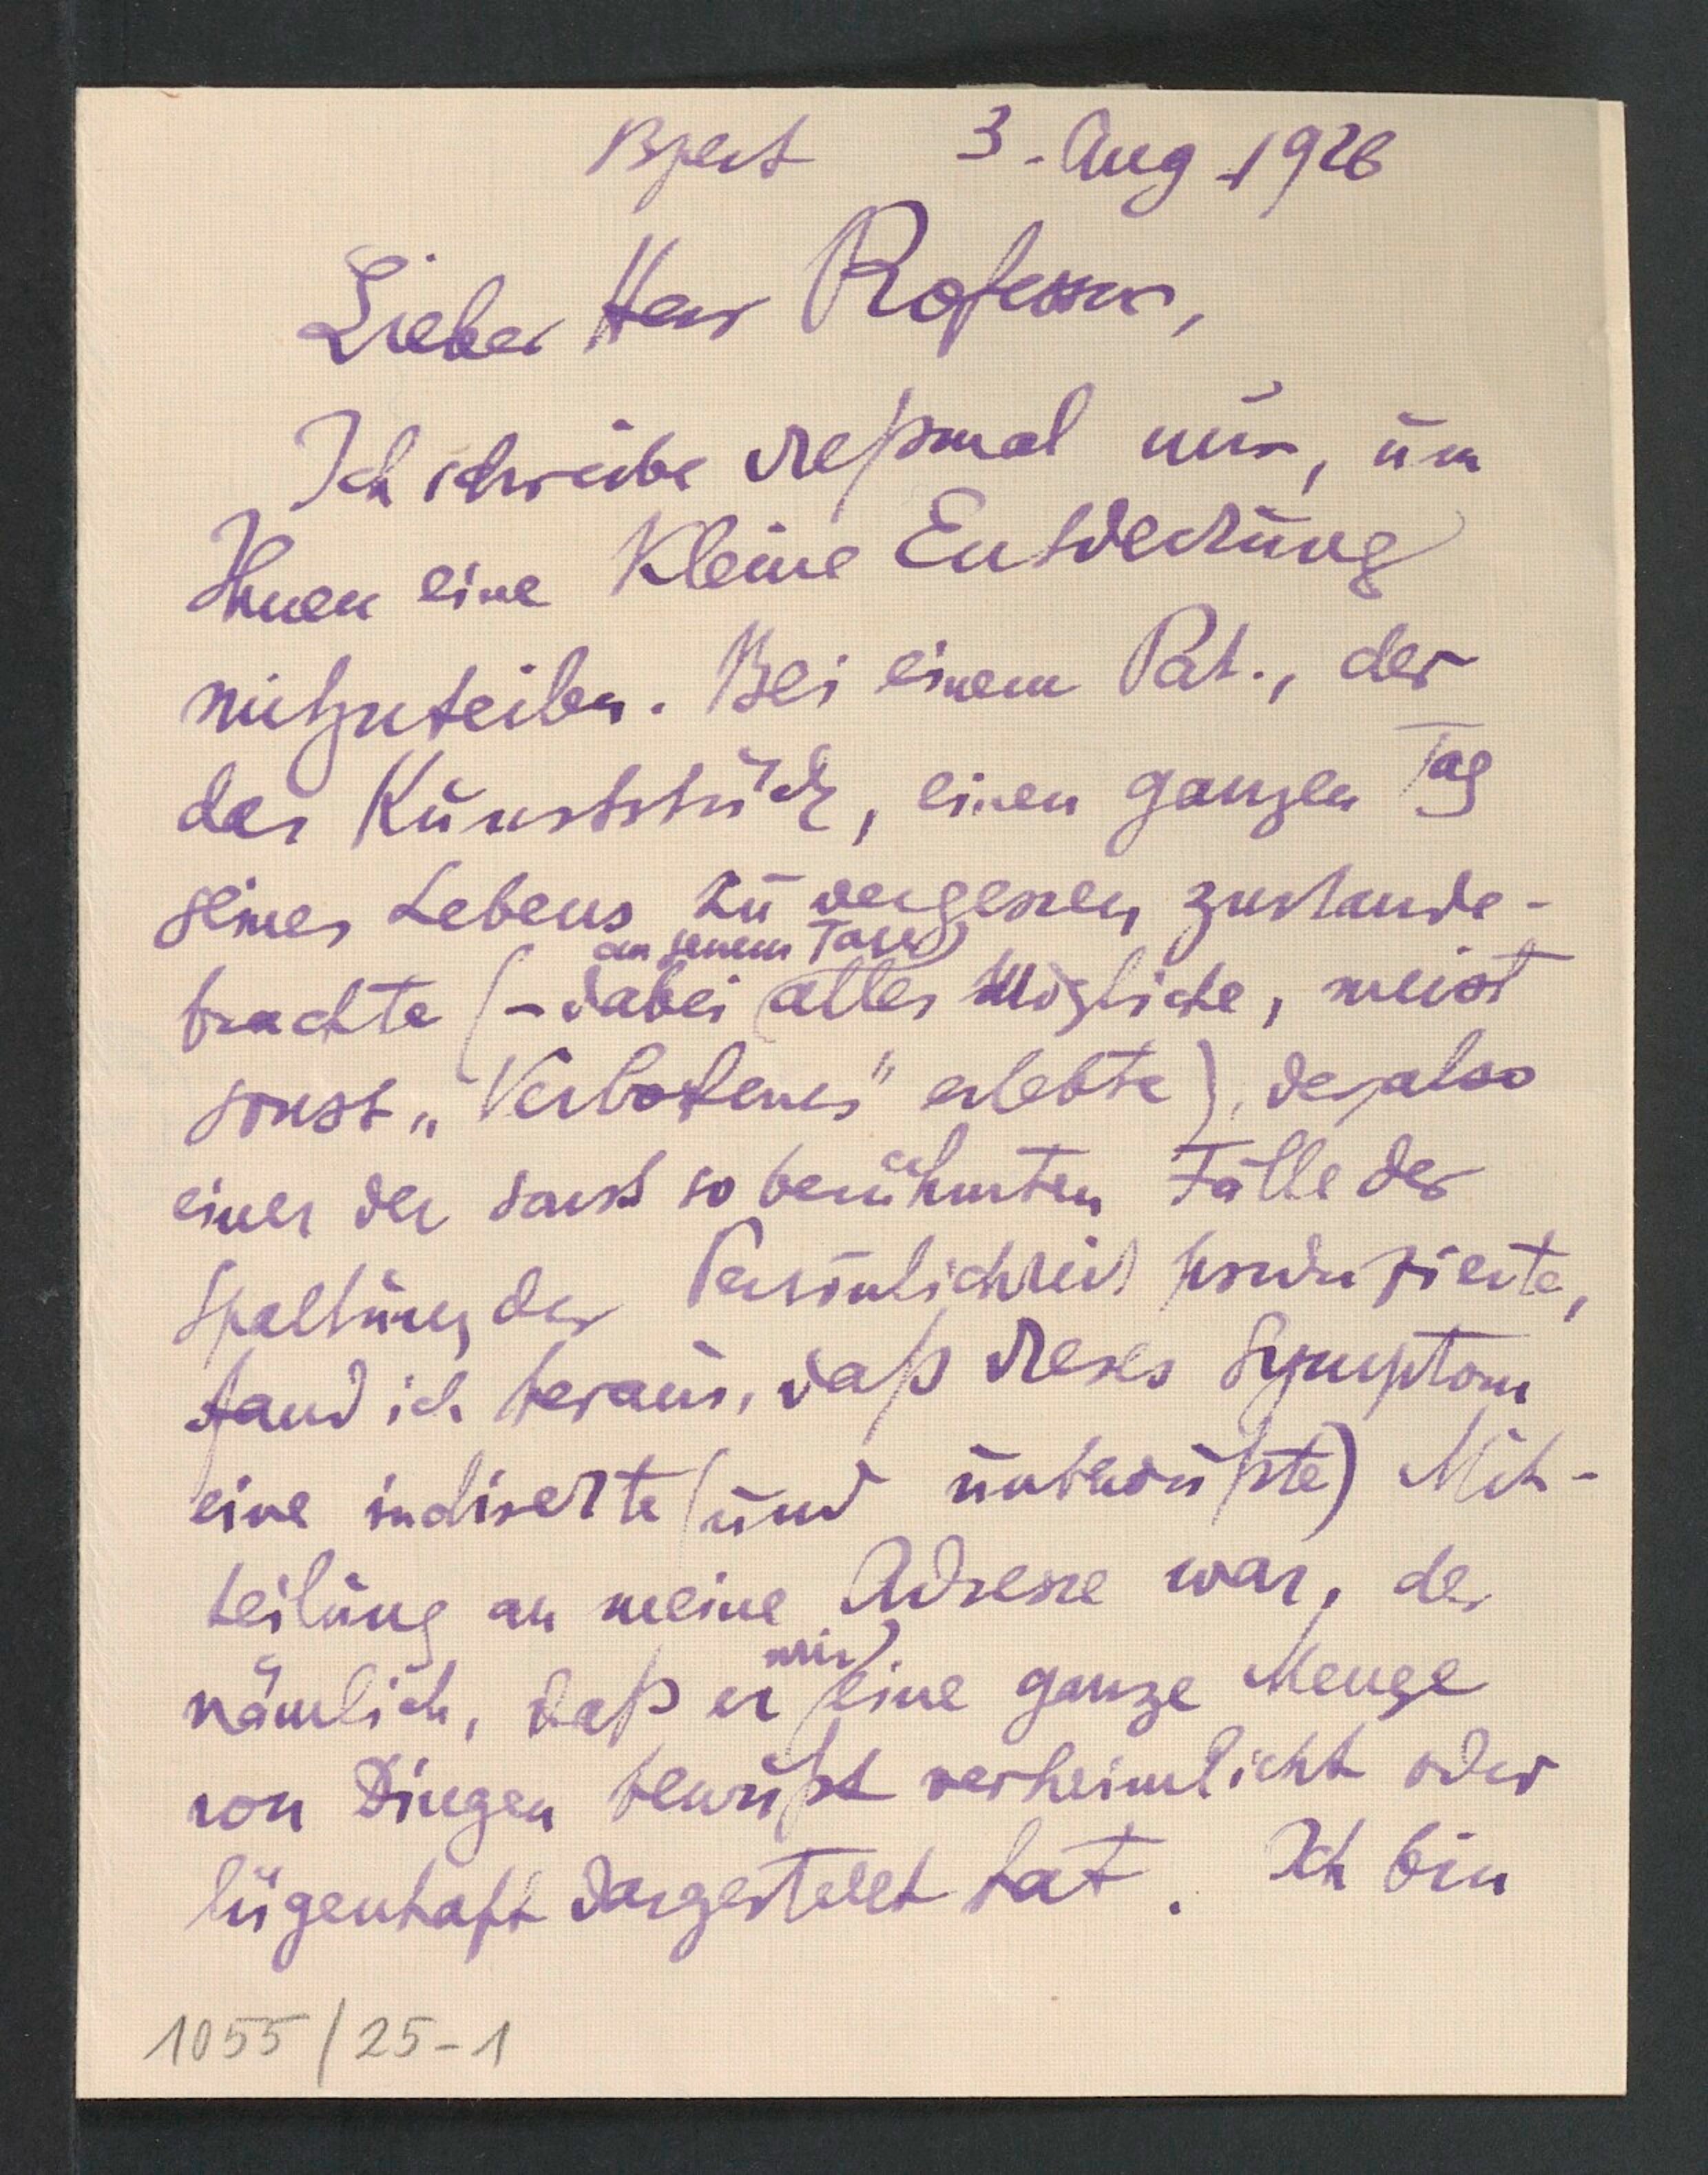 Bpest 3. Aug 1926
Lieber Herr Professor,
Ich schreibe dießmal nur, um
Ihnen eine Kleine Entdeckung
mitzuteilen. Bei einem Pat., der
das Kunststück, einen ganzen Tag
seines Lebens zu vergessen, zustande-
brachte (- dabei an jenem Tage alles Mögliche, meist
sonst „Verbotenes" erlebte), der also
einen der sonst so berühmten Fälle der
Spaltung der Persönlichkeit produzierte,
fand ich heraus, daß dieses Symptom
eine indirekte (und unbewußte) Mit-
teilung an meine Adresse war, des
nämlich, daß er mir eine ganze Menge
von Dingen bewußt verheimlicht oder
lügenhaft dargestellt hat. Ich bin
1055/25-1